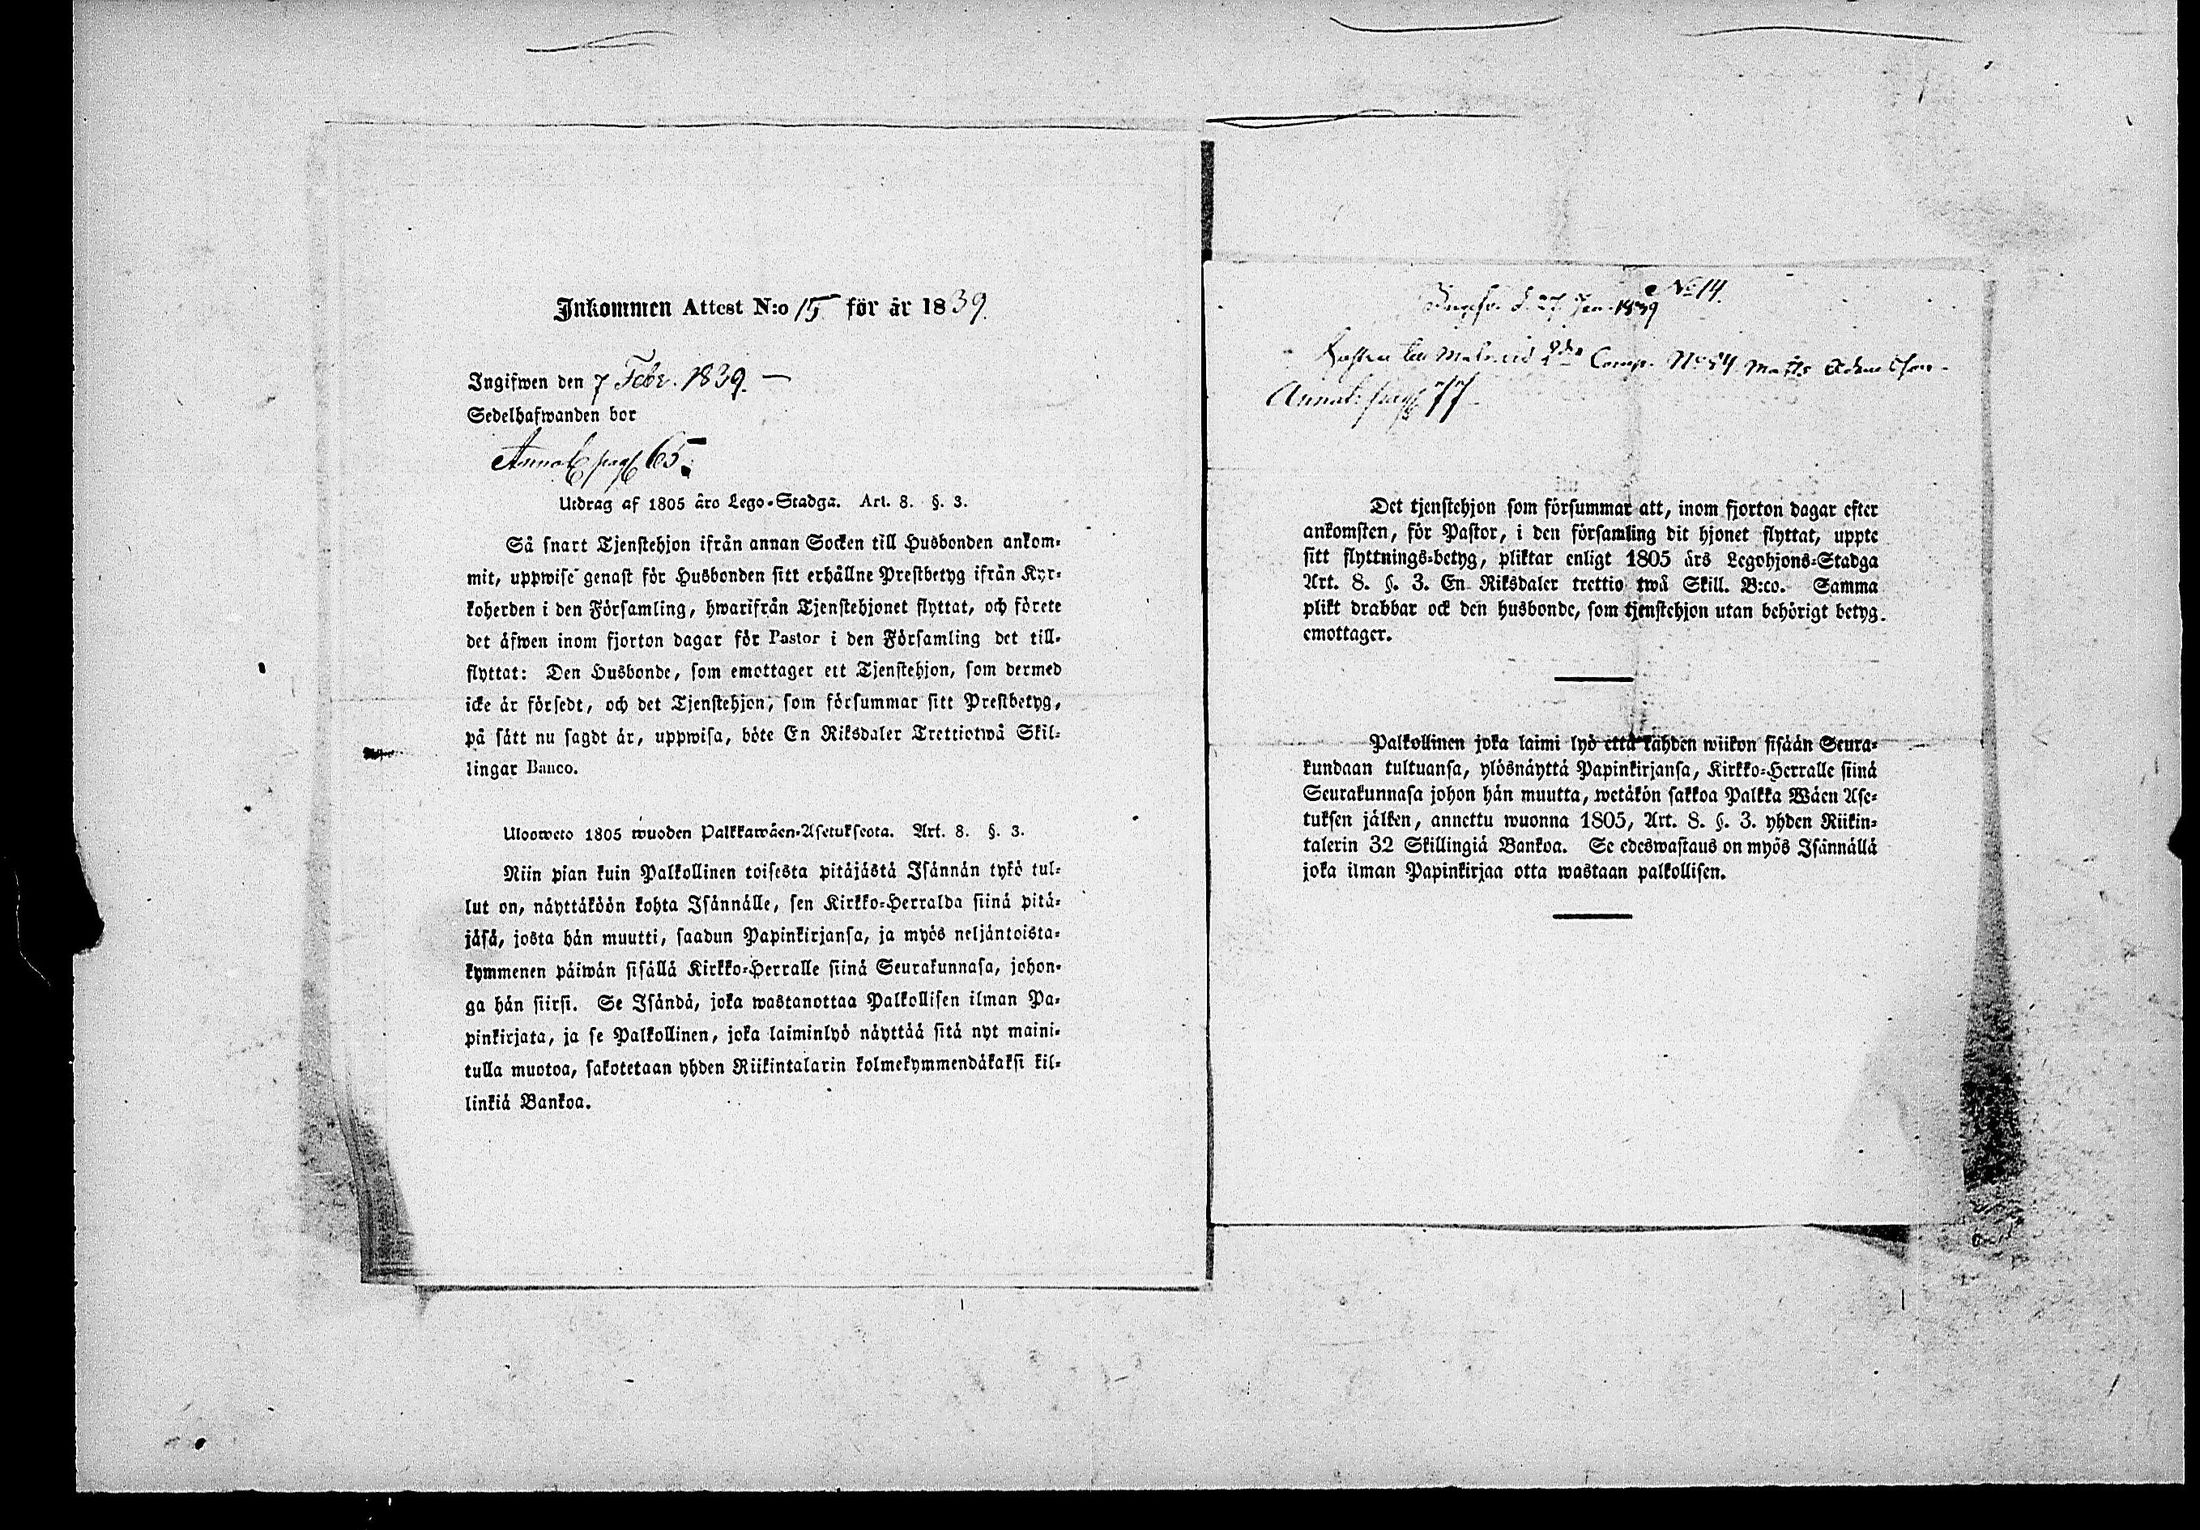 Inkommen Attest N:o 15 för år 1839.
Ingifwen den 7 Febr. 1839. —
Sedelhafwanden bor
Annot. pag. 65.
Utdrag af 1805 års Lego-Stadga. Art. 8. §. 3.
Så snart Tjenstehjon ifrån annan Socken till Husbonden ankom-
mit, uppwise genast för Husbonden sitt erhållne Prestbetyg ifrån Kyr-
koherden i den Församling, hwarifrån Tjenstehjonet flyttat, och förete
det äfwen inom fjorton dagar för Pastor i den Församling det till-
flyttat: Den Husbonde, som emottager ett Tjenstehjon, som dermed
icke är försedt, och det Tjenstehjon, som försummar sitt Prestbetyg,
på sätt nu sagdt är, uppwisa, böte En Riksdaler Trettiotwå Skil-
lingar Banco.
Ulosweto 1805 wuoden Palkkawäen-Asetuksesta. Art. 8. §. 3.
Niin pian kuin Palkollinen toisesta pitäjästä Isännän tykö tul-
lut on, näyttäköön kohta Isännälle, sen Kirkko-Herralda siinä pitä-
jäsä, josta hän muutti, saadun Papinkirjansa, ja myös neljäntoista-
kymmenen päiwän sisällä Kirkko-Herralle siinä Seurakunnasa, johon-
ga hän siirsi. Se Isändä, joka wastanottaa Palkollisen ilman Pa-
pinkirjata, ja se Palkollinen, joka laiminlyö näyttää sitä nyt maini-
tulla muotoa, sakotetaan yhden Riikintalarin kolmekymmendäkaksi kil-
linkiä Bankoa.
No 14.
d. 27 Jan. 1839
Comp. No 54 Matts
Annot. pag. 77
Det tjenstehjon som försummar att, inom fjorton dagar efter
ankomsten, för Pastor, i den församling dit hjonet flyttat, uppte
sitt flyttnings-betyg, pliktar enligt 1805 års Legohjons-Stadga
Art. 8. §. 3. En Riksdaler trettio twå Skill. B:co. Samma
plikt drabbar ock den husbonde, som tjenstehjon utan behörigt betyg
emottager.
Palkollinen joka laimi lyö että kahden wiikon sisään Seura-
kundaan tultuansa, ylösnäyttä Papinkirjansa, Kirkko-Herralle siinä
Seurakunnasa johon hän muutta, wetäkön sakkoa Palkka Wäen Ase-
tuksen jälken, annettu wuonna 1805, Art. 8. §. 3. yhden Riikin-
talerin 32 Skillingiä Bankoa. Se edeswastaus on myös Isännällä
joka ilman Papinkirjaa otta wastaan palkollisen.